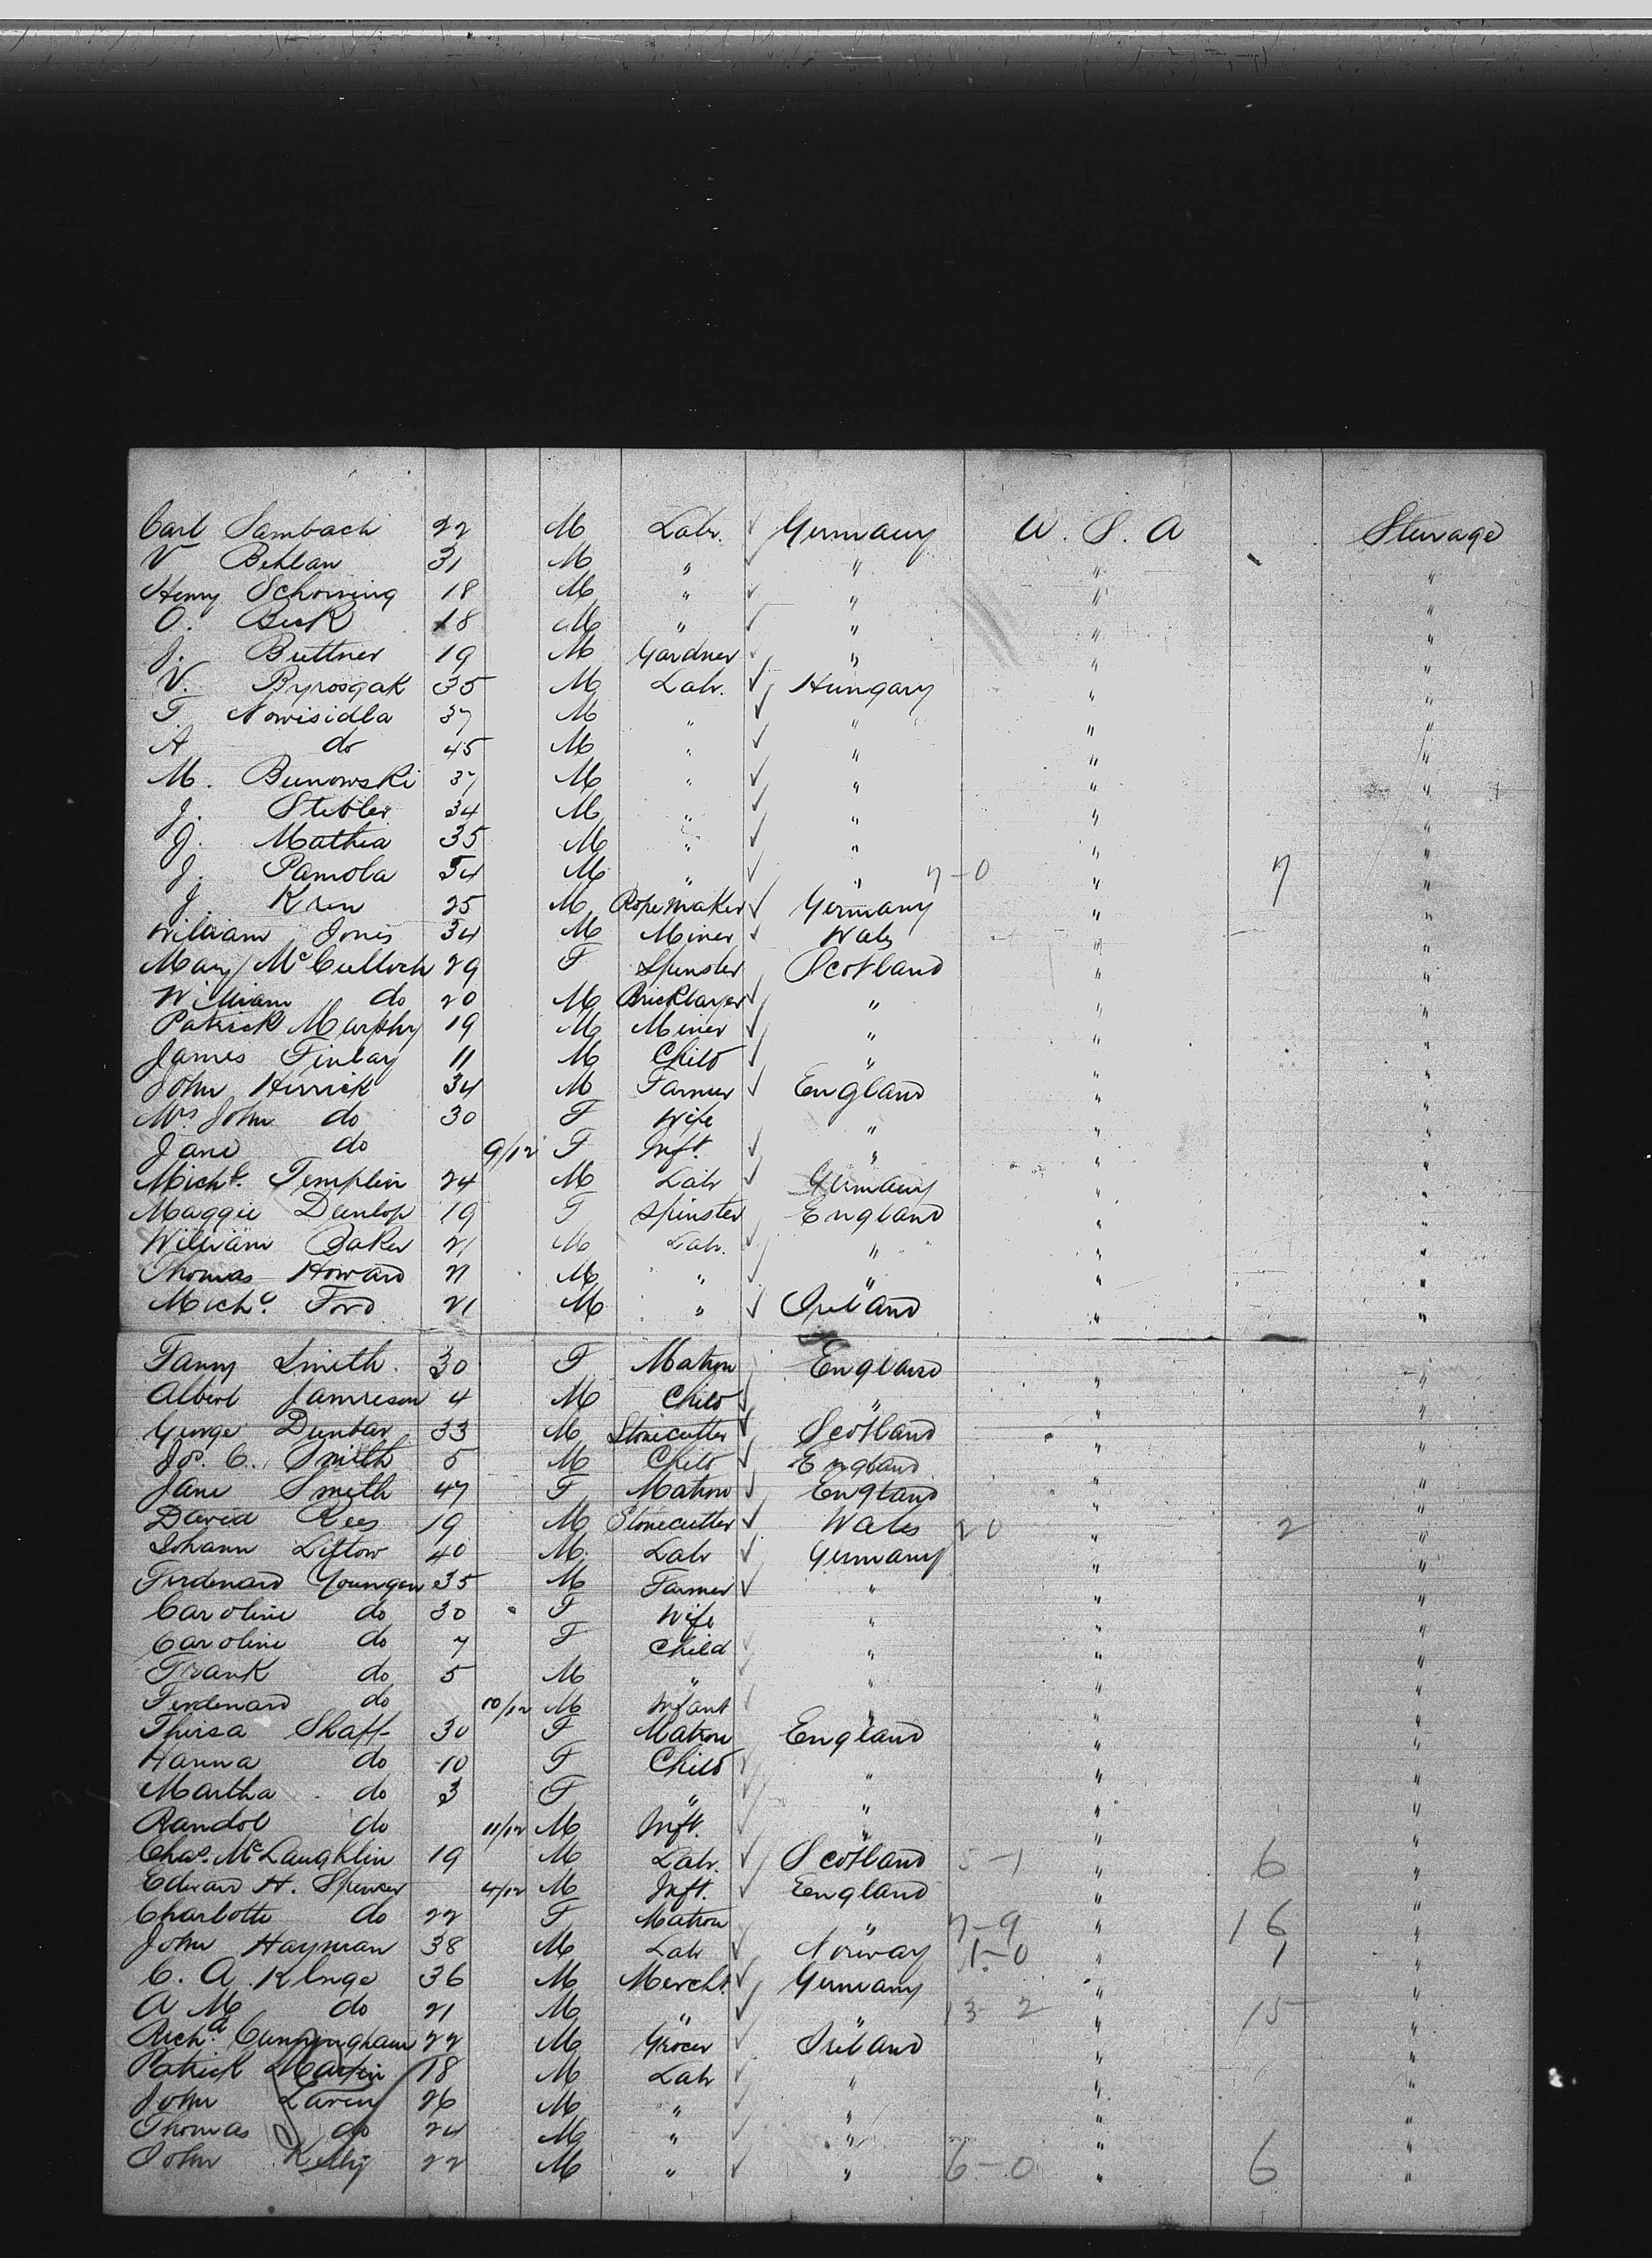 Carl Sambach 22 M Labr. ✓ Germany U. S. A Steerage
V Behlan 31 M " ✓ " " "
Henry Schowing 18 M " ✓ " " "
O. Beck 18 M " ✓ " " "
J. Buttner 19 M Gardner ✓ " " "
V. Byrosgak 35 M Labr. ✓ Hungary " "
F. Nowisidla 37 M " ✓ " " "
A do 45 M " ✓ " " "
M. Bunowski 37 M " ✓ " " "
J. Stibler 34 M " ✓ " " "
J. Mathia 35 M " ✓ " " "
J. Pamola 34 M " ✓ " 7-0 " 7 "
J Kren 25 M Ropemaker ✓ Germany " "
William Jones 34 M Miner ✓ Wales " "
Mary McCulloch 29 F Spinster Scotland " "
William do 20 M Bricklayer ✓ " " "
Patrick Murphy 19 M Miner ✓ " " "
James Finlay 11 M Child ✓ " " "
John Herrick 34 M Farmer ✓ England " "
Mrs John do 30 F Wife " " "
Jane do 9/12 F Inft. ✓ " " "
Michl. Templin 24 M Labr ✓ Germany " "
Maggie Dunlop 19 F Spinster England " "
William Baker 21 M Labr. ✓ " " "
Thomas Howard 21 M " ✓ " " "
Michl. Ford 21 M " ✓ Ireland " "
Fanny Smith. 30 F Matron England " "
Albert Jamieson 4 M Child ✓ " " "
George Dunbar 33 M Stonecutter ✓ Scotland " "
Js. C. Smith 5 M Child ✓ England " "
Jane Smith 47 F Matron ✓ England " "
David Rees 19 M Stonecutter ✓ Wales 20 " 2 "
Johann Littow 40 M Labr ✓ Germany " "
Ferdenard Youngan 35 M Farmer ✓ " " "
Caroline do 30 F Wife " " "
Caroline do 7 F Child ✓ " " "
Frank do 5 M " ✓ " " "
Ferdenard do 10/12 M Infant ✓ " " "
Thirsa Shaff 30 F Matron England " "
Hanna do 10 F Child ✓ " " "
Martha do 3 F " ✓ " " "
Randol do 11/12 M Inft. ✓ " " "
Chas. McLaughlin 19 M Labr. ✓ Scotland 5-1 " 6 "
Edward H. Spencer 4/12 M Inft. ✓ England " "
Charlotte do 22 F Matron " 7-9 " 16 "
John Hayman 38 M Labr ✓ Norway 1-0 " 1 "
C. A. Klnge 36 M Mercht. ✓ Germany " "
A M do 21 M " ✓ " 13-2 " 15 "
Richd. Cunningham 22 M Grocer ✓ Ireland " "
Patrick Martin 18 M Labr ✓ " " "
John Lavey 26 M " ✓ " " "
Thomas do 24 M " ✓ " " "
John Kelly 22 M " ✓ " 6-0 " 6 "